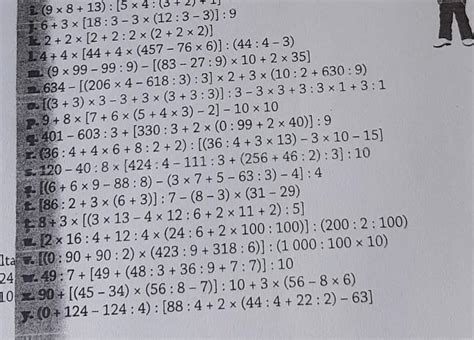 i. (9 × 8 + 13) : [5 × 4 : (3 + 2) + 1]
j. 6 + 3 × [18 : 3 – 3 × (12 : 3 – 3)] : 9
k. 2 + 2 × [2 + 2 : 2 × (2 + 2 × 2)]
l. 4 + 4 × [44 + 4 × (457 – 76 × 6)] : (44 : 4 – 3)
m. (9 × 99 – 99 : 9) – [(83 – 27 : 9) × 10 + 2 × 35]
n. 634 – [(206 × 4 – 618 : 3) : 3] × 2 + 3 × (10 : 2 + 630 : 9)
o. [(3 + 3) × 3 – 3 + 3 × (3 + 3 : 3)] : 3 – 3 × 3 + 3 : 3 × 1 + 3 : 1
p. 9 + 8 × [7 + 6 × (5 + 4 × 3) – 2] – 10 × 10
q. 401 – 603 : 3 + [330 : 3 + 2 × (0 : 99 + 2 × 40)] : 9
r. (36 : 4 + 4 × 6 + 8 : 2 + 2) : [(36 : 4 + 3 × 13) – 3 × 10 – 15]
s. 120 – 40 : 8 × [424 : 4 – 111 : 3 + (256 + 46 : 2) : 3] : 10
[(6 + 6 × 9 – 88 : 8) – (3 × 7 + 5 – 63 : 3) – 4] : 4
[86 : 2 + 3 × (6 + 3)] : 7 – (8 – 3) × (31 – 29)
t. 8 + 3 × [(3 × 13 – 4 × 12 : 6 + 2 × 11 + 2) : 5]
u. [2 × 16 : 4 + 12 : 4 × (24 : 6 + 2 × 100 : 100)] : (200 : 2 : 100)
lta v. [(0 : 90 + 90 : 2) × (423 : 9 + 318 : 6)] : (1 000 : 100 × 10)
24 w. 49 : 7 + [49 + (48 : 3 + 36 : 9 + 7 : 7)] : 10
10 x. 90 + [(45 – 34) × (56 : 8 – 7)] : 10 + 3 × (56 – 8 × 6)
y. (0 + 124 – 124 : 4) : [88 : 4 + 2 × (44 : 4 + 22 : 2) – 63]